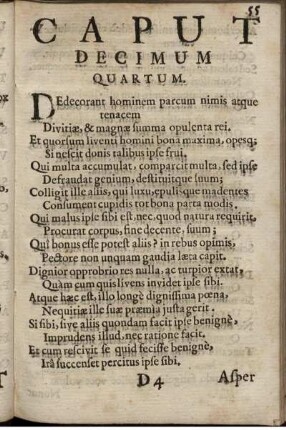 55
CAPUT
DECIMUM
QUARTUM.
DEdecorant hominem parcum nimis atque
tenacem
Divitiæ, & magnæ summa opulenta rei.
Et quorsum liventi homini bona maxima, opesq;
Si nescit donis talibus ipse frui.
Qui multa accumulat, comparcit multa, sed ipse
Defraudat genium, destituitque suum;
Colligit ille aliis, qui luxu, epulisque madentes
Consument cupidis tot bona parta modis.
Qui malus ipse sibi est, nec, quod natura requirit,
Procurat corpus, sine decente, suum;
Qui bonus esse potest aliis? in rebus opimis,
Pectore non unquam gaudia læta capit.
Dignior opprobrio res nulla, ac turpior extat,
Quàm cum quis livens invidet ipse sibi.
Atque hæc est, illo longè dignissima pœna,
Nequitiæ ille suæ præmia justa gerit.
Si sibi, sive aliis quondam facit ipse benignè,
Imprudens illud, nec ratione facit.
Et cum rescivit se quid fecisse benignè,
Irâ succenset percitus ipse sibi.
D 4
Asper